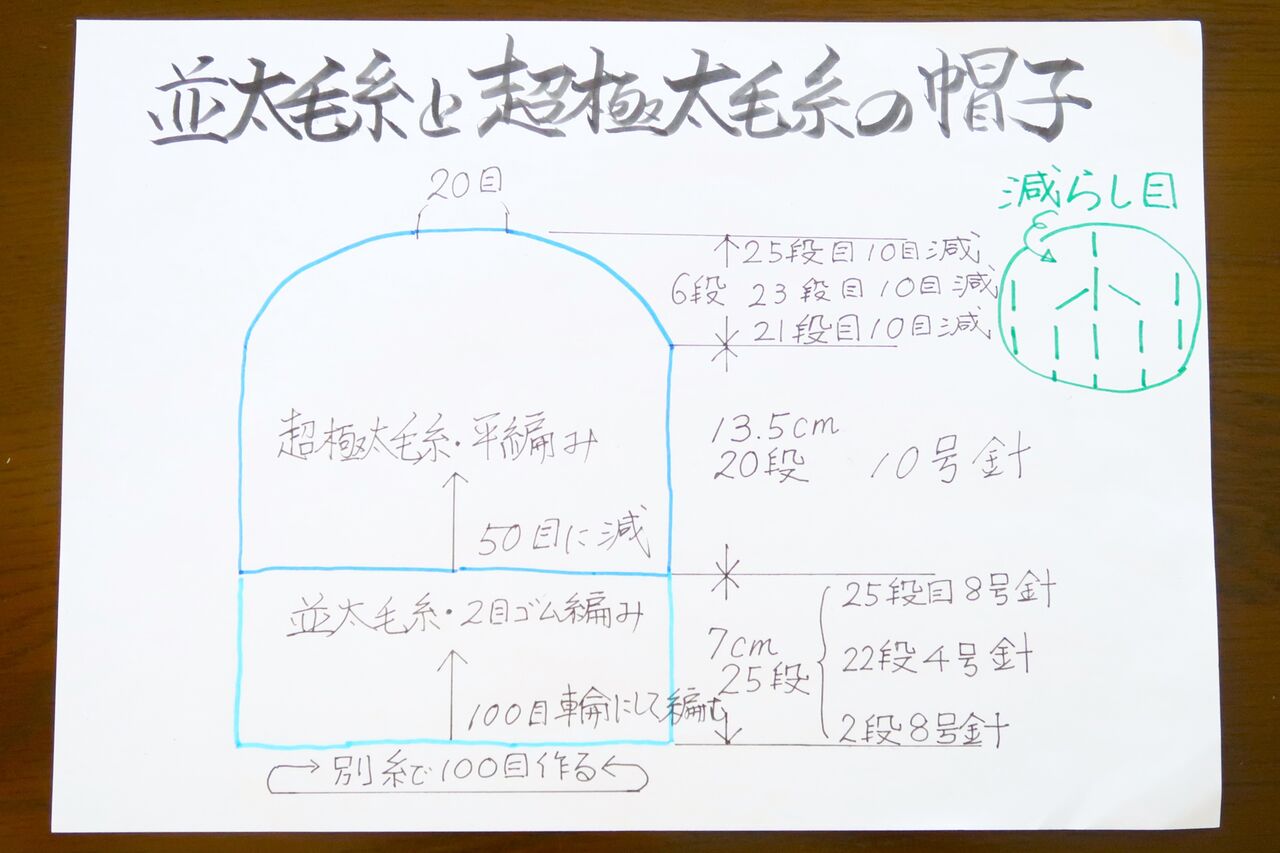 並太毛糸と超極太毛糸の帽子
20目
減らし目
25段目10目減
6段 23段目10目減
21段目10目減
超極太毛糸・平編み
13.5cm
20段 10号針
50目に減
並太毛糸・2目ゴム編み
7cm
25段
25段目8号針
22段4号針
2段8号針
100目輪にして編む
別糸で100目作る